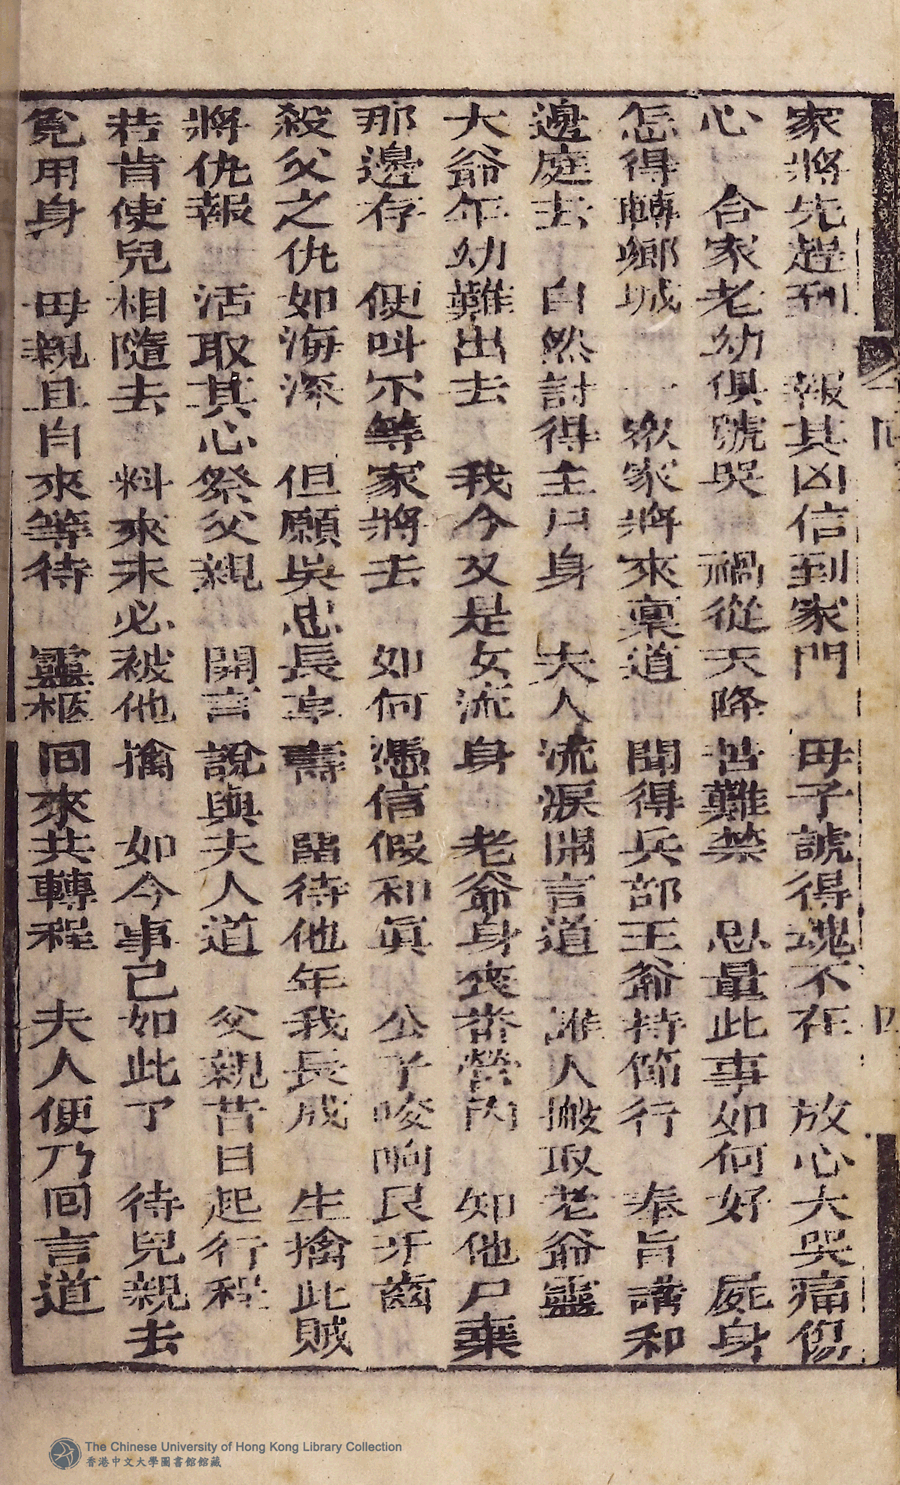 家將先趕到　報其凶信到家門　母子諕得魂不在　放心大哭痛傷
心　合家老幼俱號哭　禍從天降苦難禁　思量此事如何好　屍身
怎得轉鄉城　一衆家將來稟道　聞得兵部王爺持節行　奉旨講和
邊庭去　自然討得主尸身　夫人流淚開言道　誰人搬取老爺靈
大爺年幼難出去　我今又是女流身　老爺身喪畨營內　知他尸棄
那邊存　便呌不等家將去　如何憑信假和眞　公子咬响艮牙齒
殺父之仇如海深　但願吳忠長享壽　畱待他年我長成　生擒此賊
將仇報　活取其心祭父親　開言說與夫人道　父親昔日起行程
若肯使兒相隨去　料來未必被他擒　如今事已如此了　待兒親去
冤用身　母親且自來等待　靈柩囘來共轉程　夫人便乃囘言道
四
The Chinese University of Hong Kong Library Collection
香港中文大學圖書館館藏